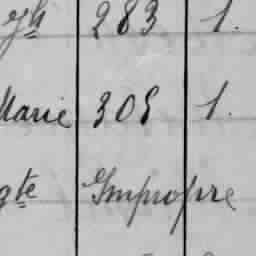 283 1.
Marie 305 1.
gte Impropre